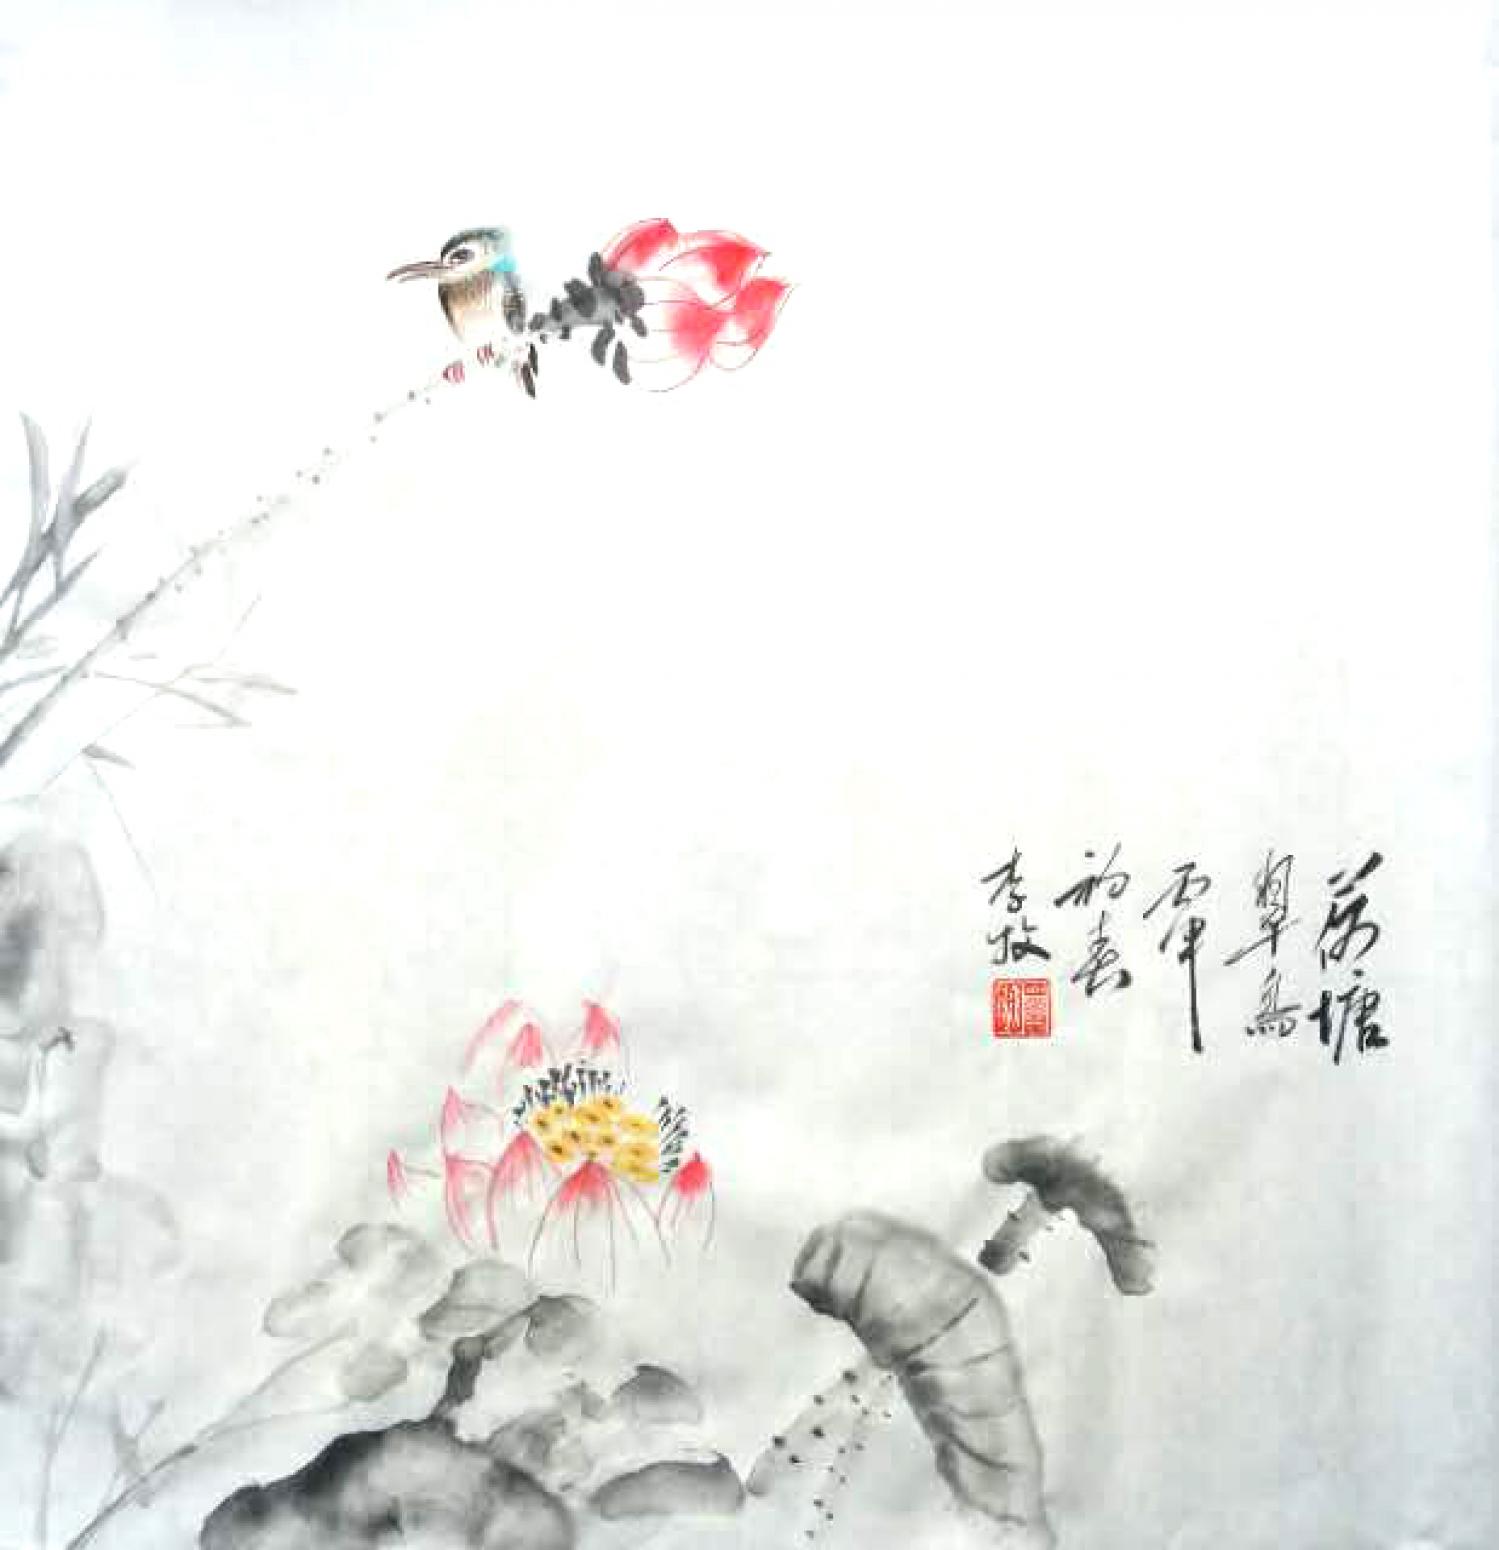 荷塘
翠鸟
丙申
初春
李牧